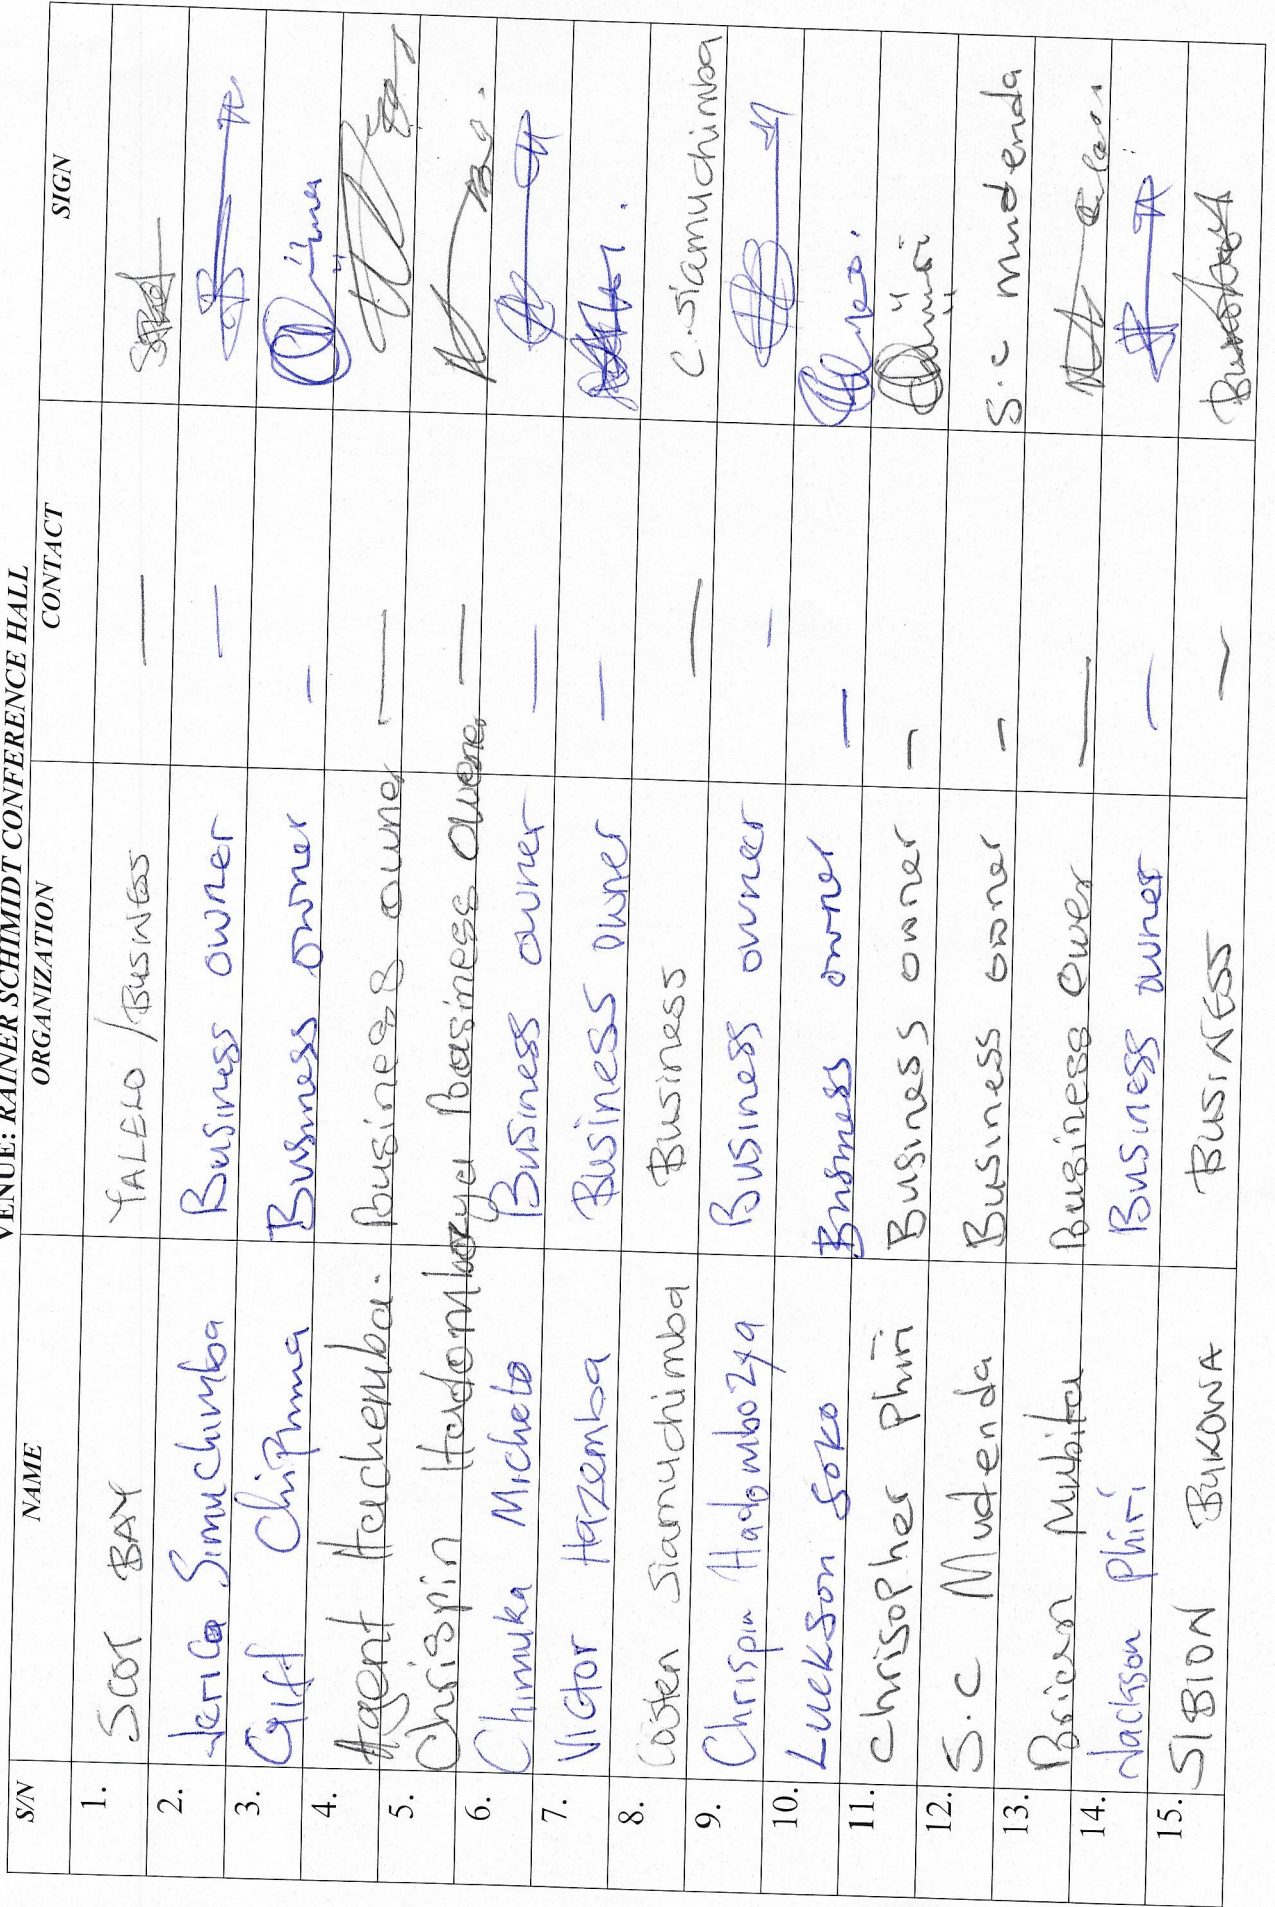 VENUE: RAINER SCHIMIDT CONFERENCE HALL
S/N NAME ORGANIZATION CONTACT SIGN
1. SCOT BAY YALELO/BUSINESS —
2. Jerico Simuchimba Business owner —
3. Gift Chiphma Business owner —
4. Agent Hachemba. Business owner —
5. Chrispin Hadombozya Business Owener —
6. Chimuka Micheto Business owner —
7. Victor Hazemba Business owner —
8. Costen Siamuchimba Business — C. Siamuchimba
9. Chrispin Hadombozya Business owner —
10. Luckson Soko Business owner —
11. Chrisopher Phiri Business owner —
12. S.C Mudenda Business owner — S.C mudenda
13. Brian Mubita Business Ower —
14. Jackson Phiri Business owner —
15. SIBION BUKOWA BUSINESS —